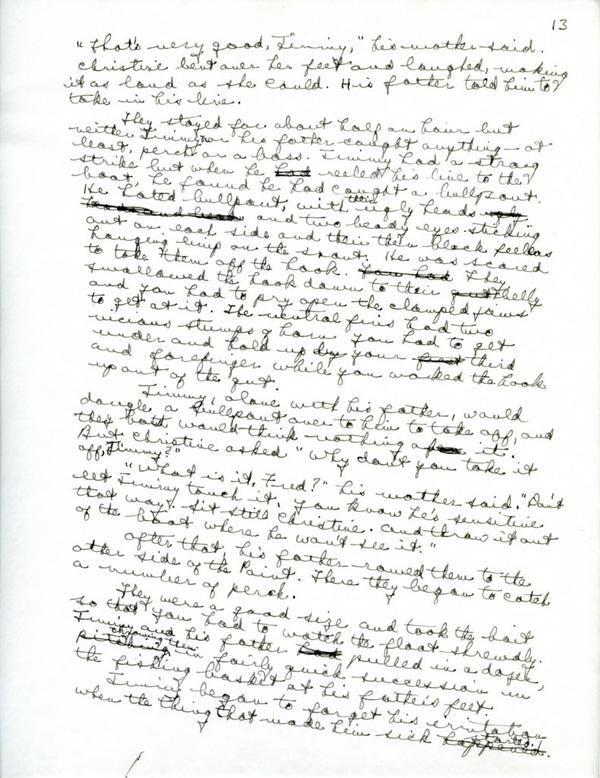 13
"That's very good, Timmy," his mother said.
Christine bent over her feet and laughed, making
it as loud as she could. His father told him to
take in his line.
They stayed for about half an hour but
neither Timmy nor his father caught anything – at
least, perch or a bass. Timmy had a strong
strike but when he had reeled his line to the
boat, he found he had caught a bullpout.
He hated bullpout, with their ugly heads
and two beady eyes sticking
out on each side and their thin black feelers
hanging limp on the snout. He was scared
to take them off the hook. You had They
swallowed the hook down to their gut belly
and you had to pry open the clamped jaws
to get at it. The ventral fins had two
vicious stumps of horn you had to get
under and hold up by your first third
and forefinger while you worked the hook
up out of the gut.
Timmy, alone with his father, would
dangle a bullpout over to him to take off, and
they both would think nothing of it.
But Christine asked "Why don't you take it
off, Timmy?"
"What is it, Fred?" his mother said. "Don't
let Timmy touch it. You know he's sensitive
that way. Sit still Christine. And throw it out
of the boat where he won't see it."
After that, his father rowed them to the
other side of the Point. There they began to catch
a number of perch.
They were a good size and took the bait
so that you had to watch the float shrewdly.
Timmy and his father had pulled in a dozen,
pitching in fairly quick succession in
the fishing basket at his father's feet.
Timmy began to forget his irritation
when the thing that made him sick happened.